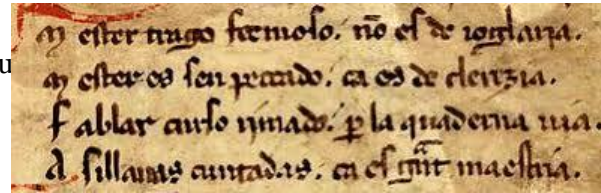 M ester trago fermoso. nõ es de ioglaria.
u
M ester es sen peccado. ca es de clerizia.
F ablar curso rimado. p̱ la quaderna uia.
A sillauas cuntadas. ca es grãt maestria.